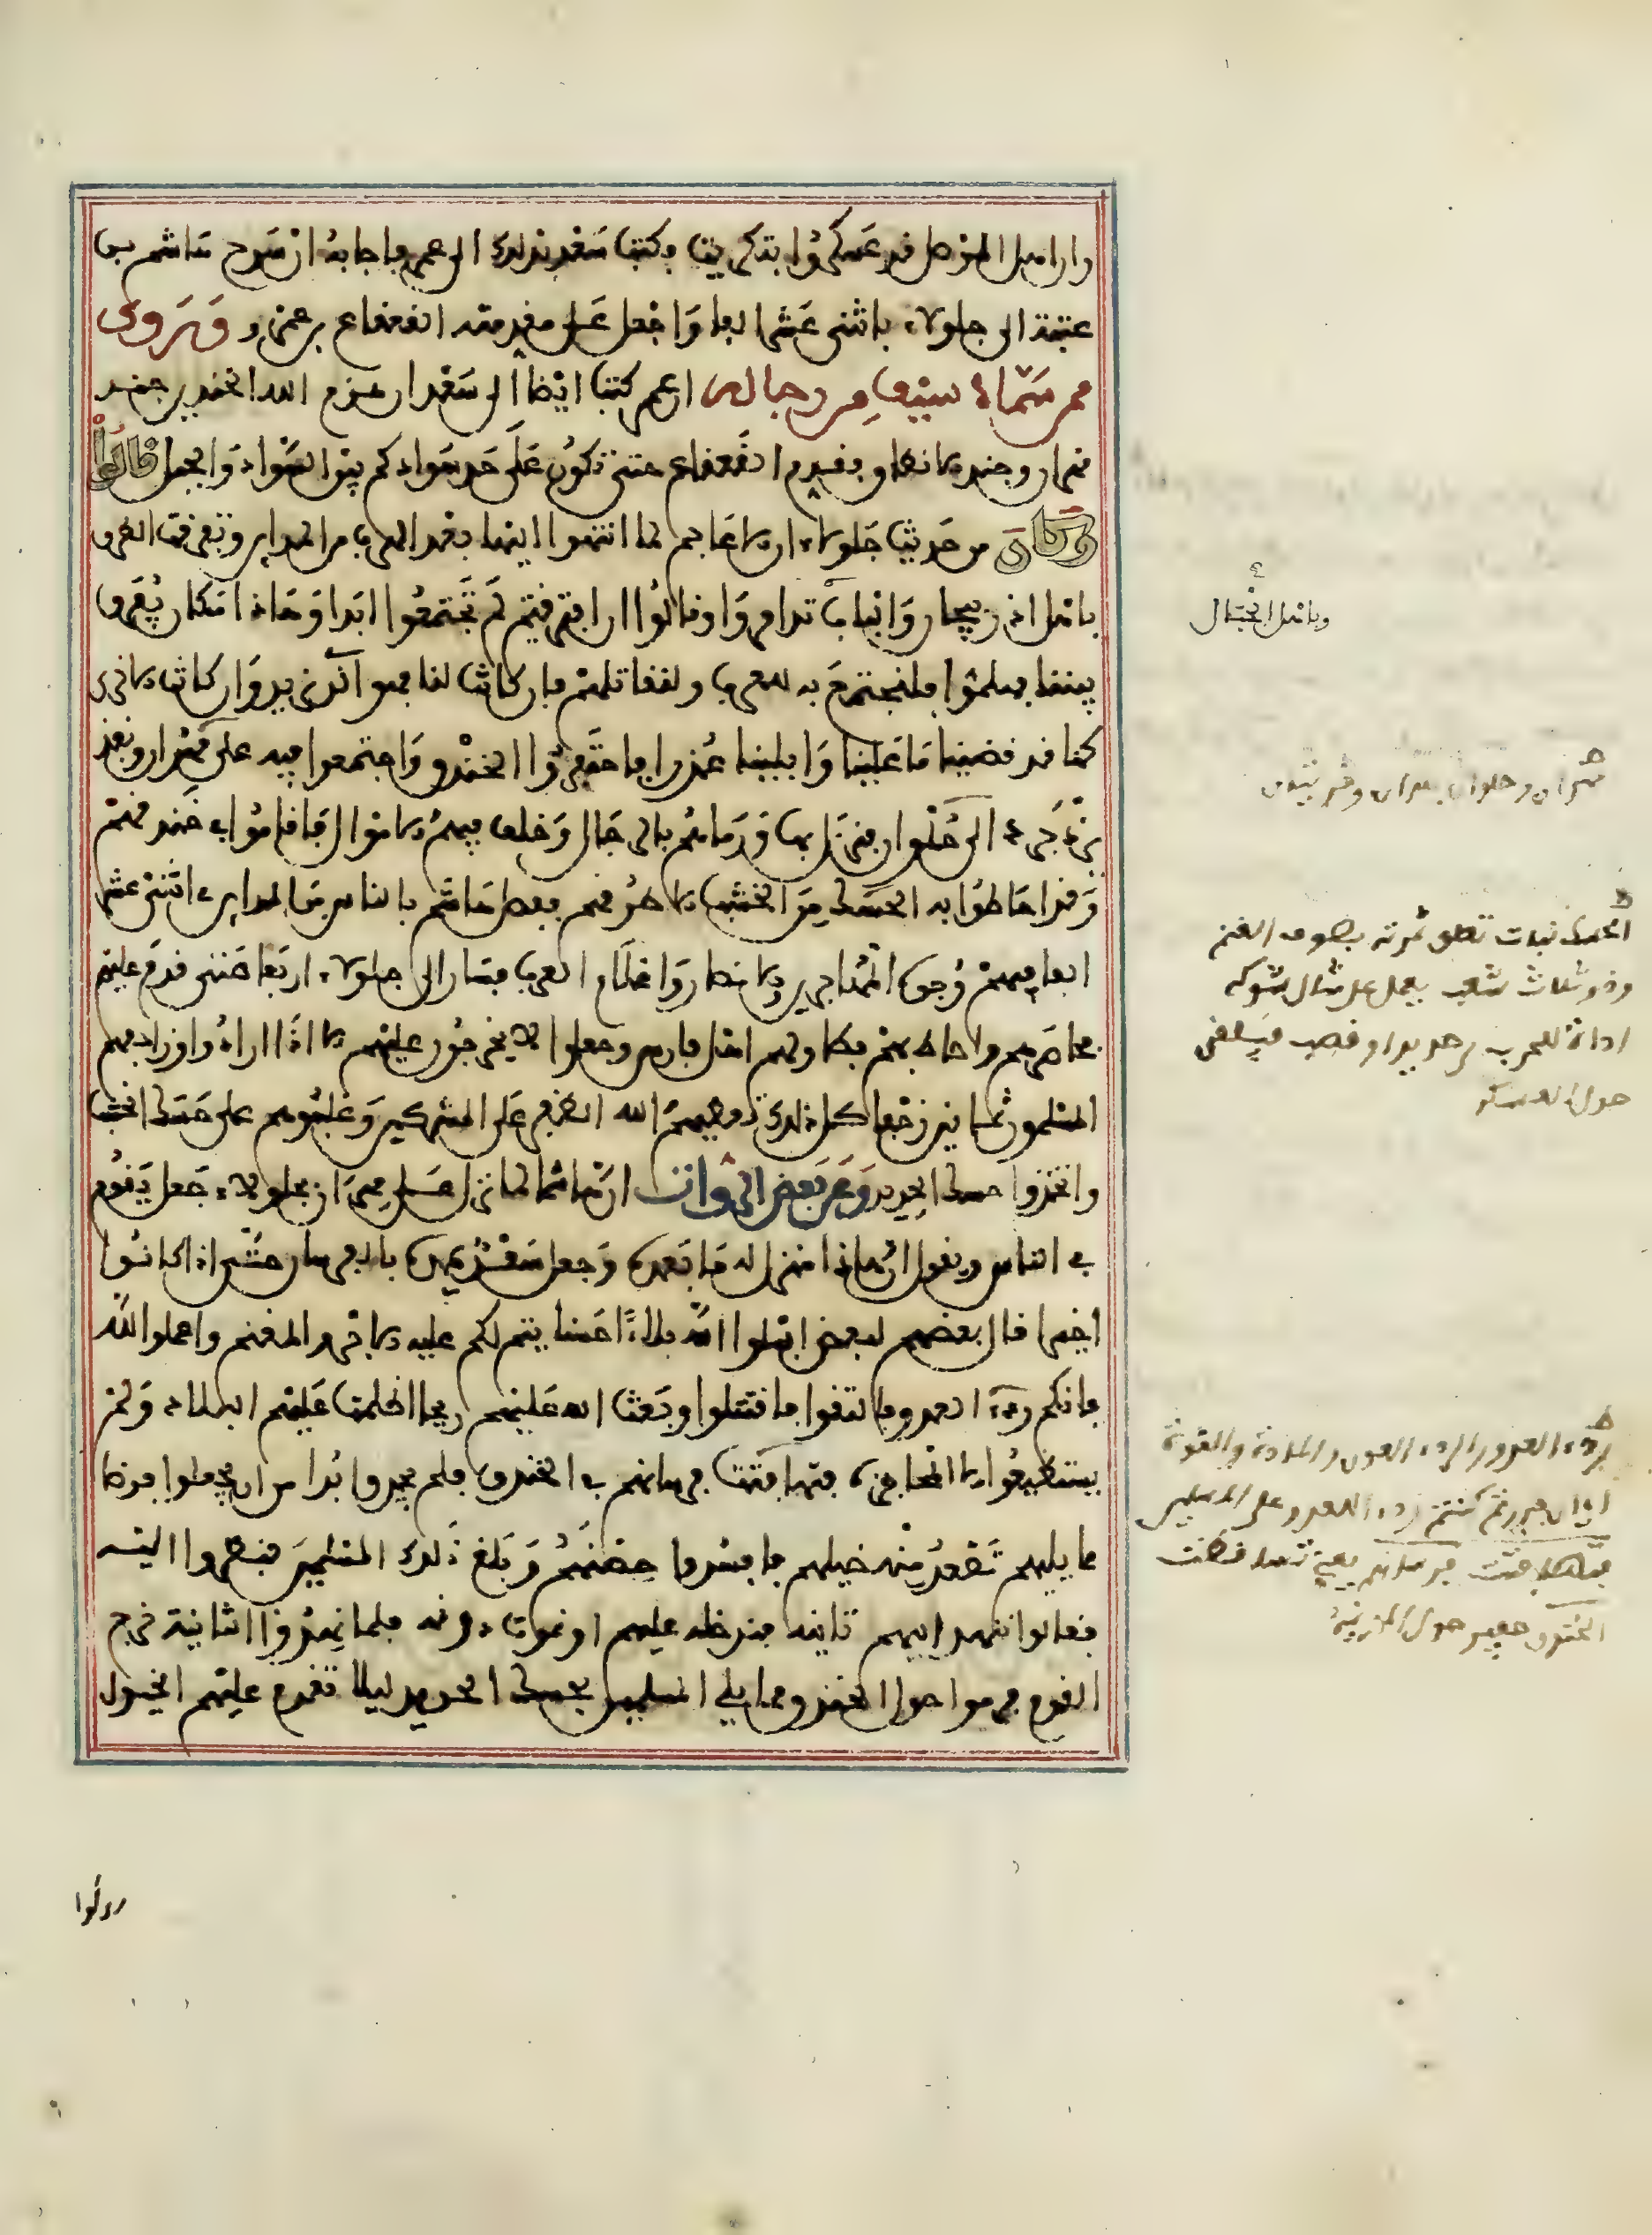 وان اهل الموصل قد عسكروا بتكريت وكتب سعد بذلك الى عمر فاجابه ان سرح هاشم بن
عتبة الى جلولاء باثنى عشر الفا واجعل على مقدمته القعقاع بن عمرو ويروى
عمن سماه سيف من رجاله ان عمر كتب ايضا الى سعد ان هزم الله الجندين جند
مهران وجند الانطاق فقدم القعقاع حتى تكون على حد سوادكم بين السواد والجبل قالوا
وكان من حديث جلولاء ان الاعاجم لما انتهوا اليها بعد الهرب من المداين وتفرقت الطرق
باهل اذربيجان والباب تذامروا وقالوا ان افترقتم لم تجتمعوا ابدا وهاذا مكان يفرق
بيننا فهلموا فلنجتمع به للعرب ولنقاتلهم فان كانت لنا فهو الذى نريد وان كانت الاخرى
كنا قد قضينا ما علينا وابلينا عذرا فاحتفروا الخندق واجتمعوا فيه على مهران ونفذ
يزدجرد الى حلوان فنزل بها ورماهم بالرجال وخلف فيهم الاموال فاقاموا فى خندقهم
وقد احاطوا به الحسك من الخشب الا طرقهم ففصل هاشم بالناس من المداين فى اثنى عشر
الفا فيهم وجوه المهاجرين والانصار واعلام العرب فسار الى جلولاء اربعا حتى قدم عليهم
فحاصرهم واحاط بهم فطاولهم اهل فارس وجعلوا لا يخرجون عليهم الا اذا ارادوا وزاحفهم
المسلمون ثمانين زحفا كل ذلك يعطيهم الله الظفر على المشركين وغلبوهم على حسك الخشب
واتخذوا حسك الحديد وعن بعض الرواة ان هاشما لما نزل على مهران بجلولاء جعل يقوم
فى الناس ويقول ان هاذا منزل له ما بعده وجعل سعد يمده بالفرسان حتى اذا كانوا
اخيرا قال بعضهم لبعض ابلوا الله بلاء حسنا يتم لكم عليه الاجر والمغنم واعملوا لله
فانكم ردء العدو فالتقوا فاقتتلوا وبعث الله عليهم ريحا اظلمت عليهم البلاد ولم
يستطيعوا الا المحاجزة فتهافتت فرسانهم فى الخندق فلم يجدوا بدا من ان يجعلوا فرضا
مما يليهم تصعد منه خيلهم فافسدوا حصنهم وبلغ ذلك المسلمين فنظروا اليه
فقالوا ننهد اليهم ثانية فندخله عليهم او نموت دونه فلما نهدوا الثانية خرج
القوم فرموا حول الخندق مما يلى المسلمين بحسك الحديد ليلا تقدم عليهم الخيول
وباهل الجبال
الحسك نبات تعلق ثمرته بصوف الغنم
وذو ثلاث شعب يعمل على مثال شوكه
اداة للحرب من حديد او قصب فيلقى
حول العسكر
ردء العدو الردء العون والمادة والقوة